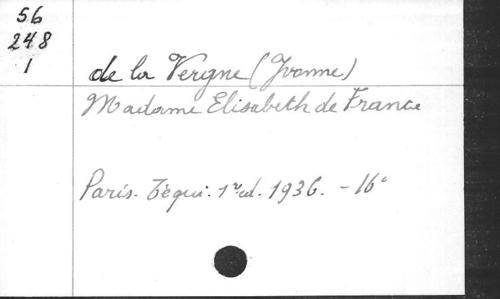 56
248
1
de la Vergne (Yvonne)
Madame Elisabeth de France
Paris. Téqui. 1re ed. 1936. - 16°